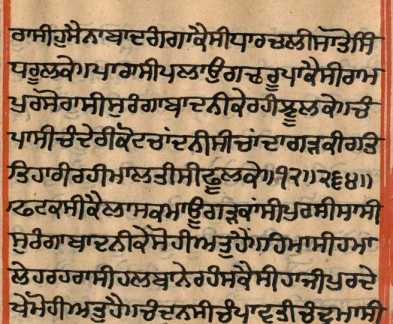 ਰਾਸੀਹੁਸੈਨਾਬਾਦਗੰਗਾਕੈਸੀਧਾਰਚਲੀਸਾਤੋਸਿੰ
ਧਰੂਲਕੇ॥ਪਾਰਾਸੀਪਲਾਊਗਢਰੂਪਾਕੈਸੀਰਾਮ
ਪੁਰਸੋਰਾਸੀਸੁਰੰਗਾਬਾਦਨੀਕੇਰਹੀਝੂਲਕੇ॥ਚੰ
ਪਾਸੀਚੰਦੇਰੀਕੋਟਚਾਂਦਨੀਸੀਚਾਂਦਾਗੜਕੀਰਤਿ
ਤਿਹਾਰੀਰਹੀਮਾਲਤੀਸੀਫੂਲਕੇ॥੧੨॥੨੬੪॥
ਫਟਕਸੀਕੈਲਾਸਕਮਾਊਗੜਕਾਂਸੀਪੁਰਸੀਸਾਸੀ
ਸੁਰੰਗਾਬਾਦਨੀਕੇਸੋਹੀਅਤੁਹੈ॥ਹਿਮਾਸੀਹਮਾ
ਲੇਹਰਹਰਾਸੀਹਲਬਾਨੇਰਹੰਸਕੈਸੀਹਾਜੀਪੁਰਦੇ
ਖੇਮੋਹੀਅਤੁਹੈ॥ਚੰਦਨਸੀਚੰਪਾਵਤੀਚੰਦ੍ਰਮਾਸੀ